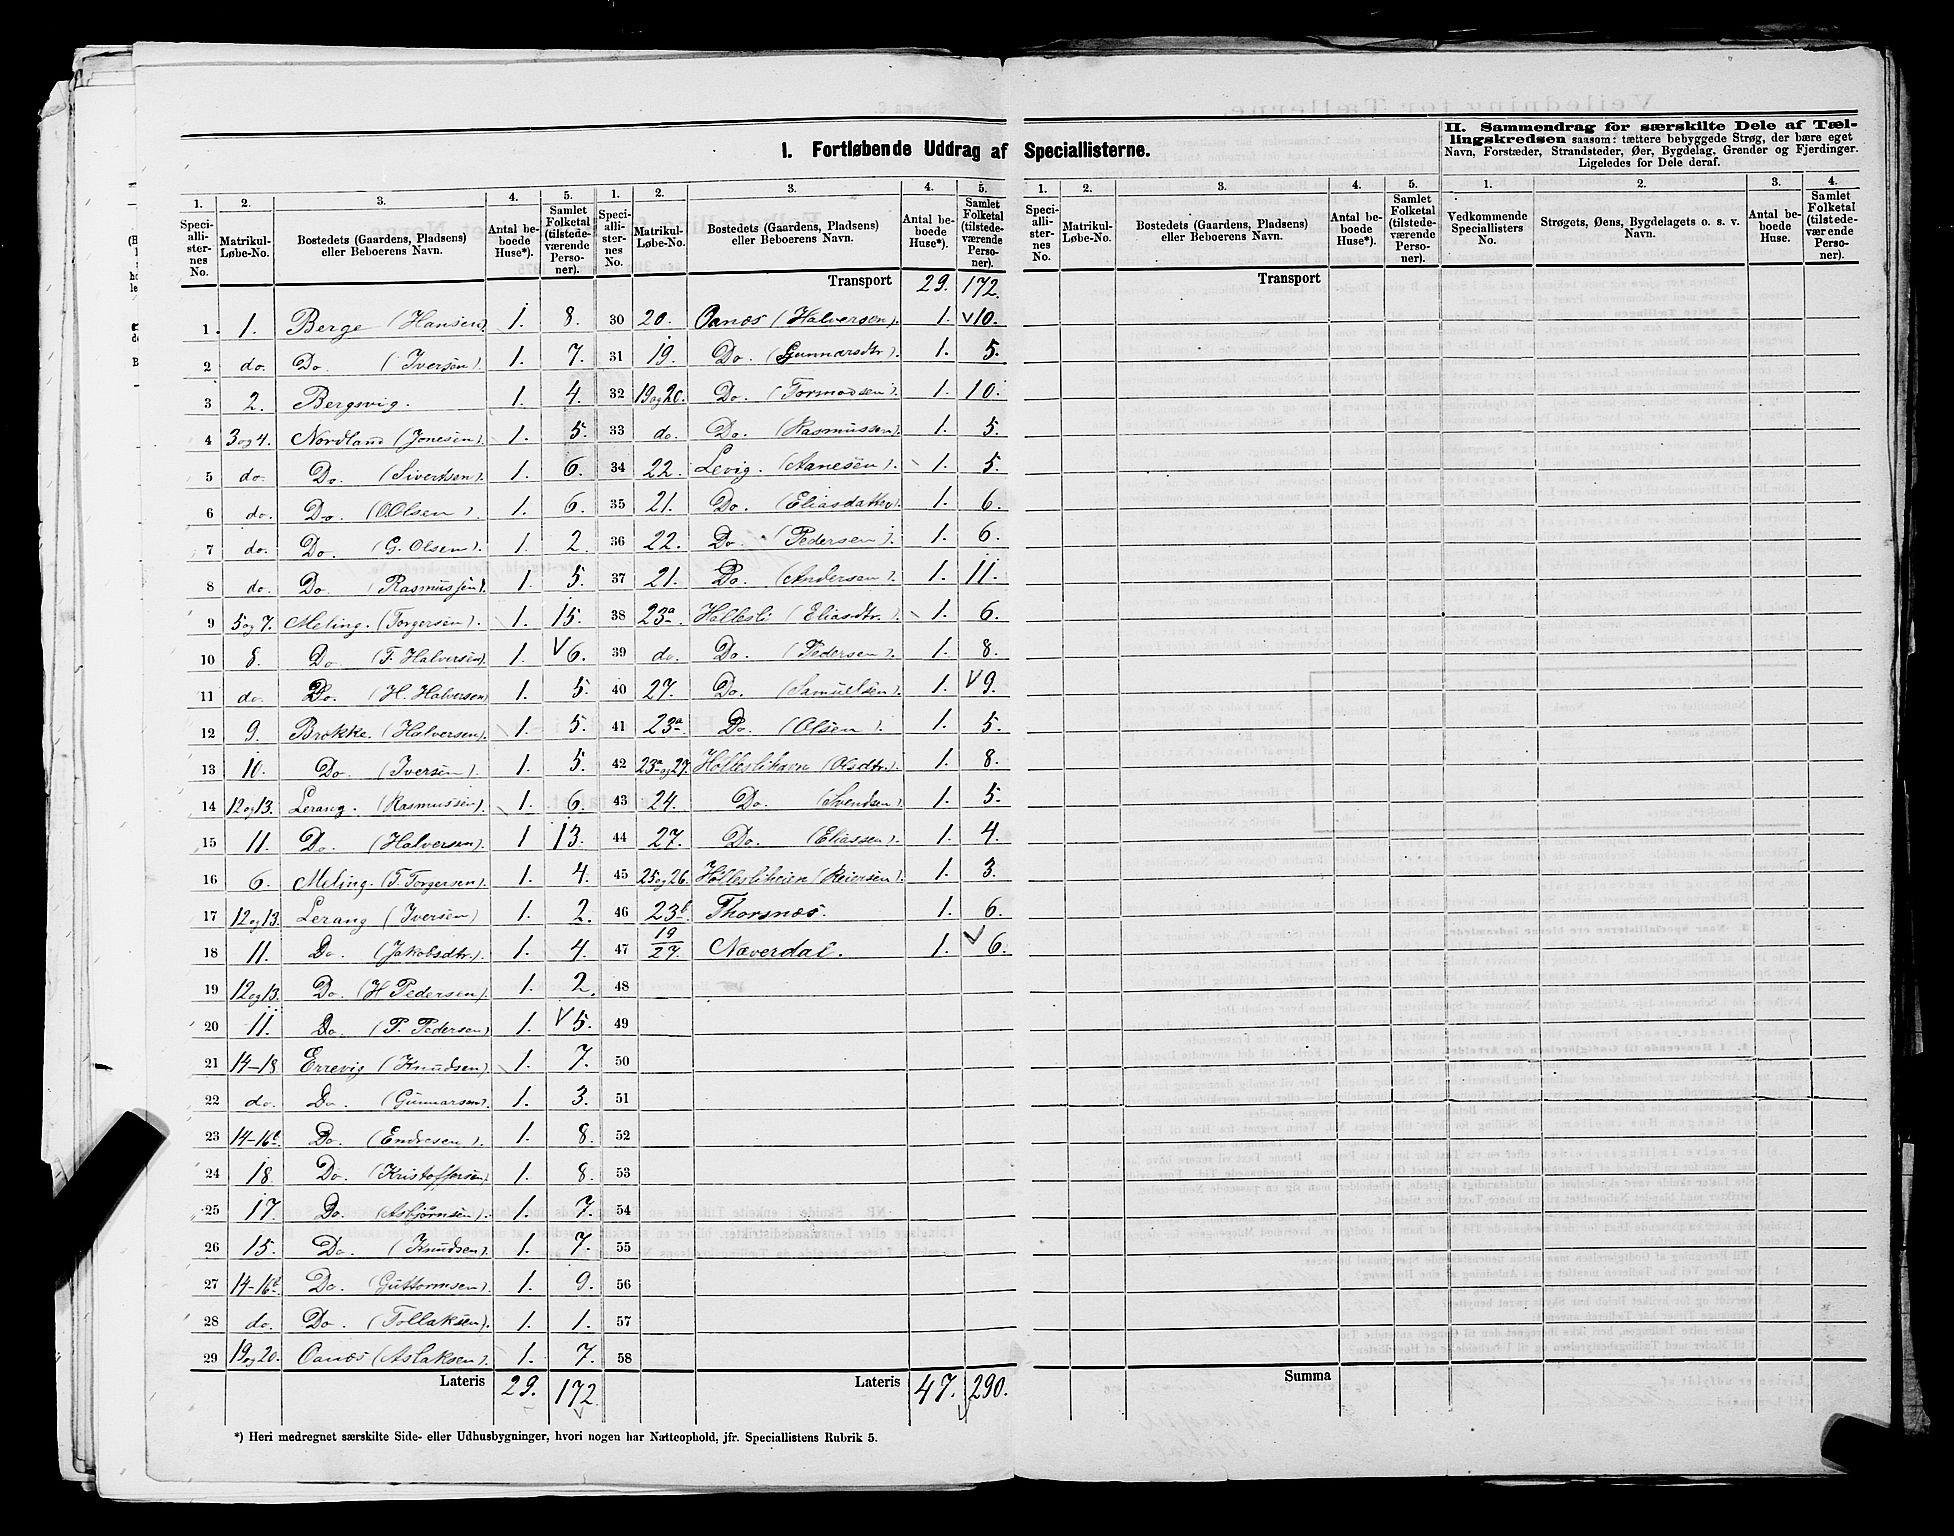 I. Fortløbende Uddrag af Speciallisterne.
II. Sammendrag for særskilte Dele af Tæl-
lingskredsen saasom: tættere bebyggede Strøg, der bære eget
Navn, Forstæder, Strandsteder, Øer, Bygdelag, Grender og Fjerdinger.
Ligeledes for Dele deraf.
1. 2. 3. 4. 5. 1. 2. 3. 4. 5. 1. 2. 3. 4. 5. 1. 2. 3. 4.
Speci-allister-nes No. Matrikul-Løbe-No. Bostedets (Gaardens, Pladsens) eller Beboerens Navn. Antal be-boede Huse*). Samlet Folketal (tilstede-værende Perso-ner).
Speci-allister-nes No. Matrikul-Løbe-No. Bostedets (Gaardens, Pladsens) eller Beboerens Navn. Antal be-boede Huse*). Samlet Folketal (tilstede-værende Perso-ner).
Speci-allister-nes No. Matrikul-Løbe-No. Bostedets (Gaardens, Pladsens) eller Beboerens Navn. Antal be-boede Huse*). Samlet Folketal (tilstede-værende Perso-ner).
Vedkommende Speciallisters No. Strøgets, Øens, Bygdelagets o. s. v. Navn. Antal be-boede Huse. Samlet Folketal (tilstede-værende Perso-ner).
1 1. Berge (Hansen) 1. 8.
2 do. Do (Iversen). 1. 7.
3 2. Bergsvig. 1. 4.
4 3 og 4. Nordland (Jonesen). 1. 5.
5 do. Do (Sivertsen). 1. 6.
6 do. Do (O Olsen). 1. 6.
7 do. Do (G. Olsen). 1. 2.
8 do. Do (Rasmussen). 1. 5.
9 5 og 7. Meling. (Torgersen). 1. 15.
10 8. Do (T. Halversen). 1. 6.
11 do. Do. (H. Halversen) 1. 5.
12 9. Brokke. (Halversen). 1. 5.
13 10. Do. (Iversen). 1. 5.
14 12 og 13. Lerang. (Rasmussen). 1. 6.
15 11. Do. (Halversen) 1 13.
16 6. Meling. (T. Torgersen). 1. 4.
17 12 og 13. Lerang (Iversen) 1. 2.
18 11. Do. (Jakobsdtr.) 1. 4.
19 12 og 13. Do. (H Pedersen). 1. 2.
20 11. Do (P. Pedersen) 1. 5.
21 14-18 Errevig (Knudsen) 1. 7.
22 do. Do. (Gunnarsen). 1. 3.
23 14-16b. Do. (Endresen). 1. 8.
24 18. Do. (Kristoffersen) 1. 8.
25 17. Do. (Asbjørnsen). 1. 7.
26 15. Do. (Knudsen). 1. 7.
27 14-16b. Do. (Guttormsen). 1. 9.
28 do. Do. (Tollaksen). 1. 1.
29 19 og 20. Oanæs (Aslaksen). 1. 7.
Lateris 29. 172
Transport 29. 172.
30 20. Oanæs (Halversen). 1. 10.
31 19. Do. (Gunnarsdtr). 1. 5.
32 19 og 20. Do. (Tormodsen) 1. 10.
33 do. Do. (Rasmussen). 1. 5.
34 22. Levig. (Aanesen). 1. 5.
35 21. Do (Eliasdatter). 1. 6.
36 22. Do (Pedersen). 1. 6.
37 21. Do. (Andersen). 1. 11.
38 23a. Hollesli (Eliasdtr.) 1. 6.
39 do. Do. (Pedersen). 1. 8.
40 27. Do. (Samuelsen). 1. 9.
41 23a. Do. (Olsen). 1. 5.
42 23a og 27. Höllesli havn (Olsdtr.). 1. 8.
43 24. Do. (Svendsen). 1. 5.
44 27. Do. (Eliassen). 1. 4.
45 25 og 26. Höllesliheien (Reiersen). 1. 3.
46 23b. Thorsnæs. 1. 6.
47 19/27. Næverdal. 1. 6.
48
49
50
51
52
53
54
55
56
57
58
Lateris 47. 290.
Transport
Summa
*) Heri medregnet særskilte Side- eller Udhusbygninger, hvori nogen har Natteophold, jfr. Speciallistens Rubrik 5.